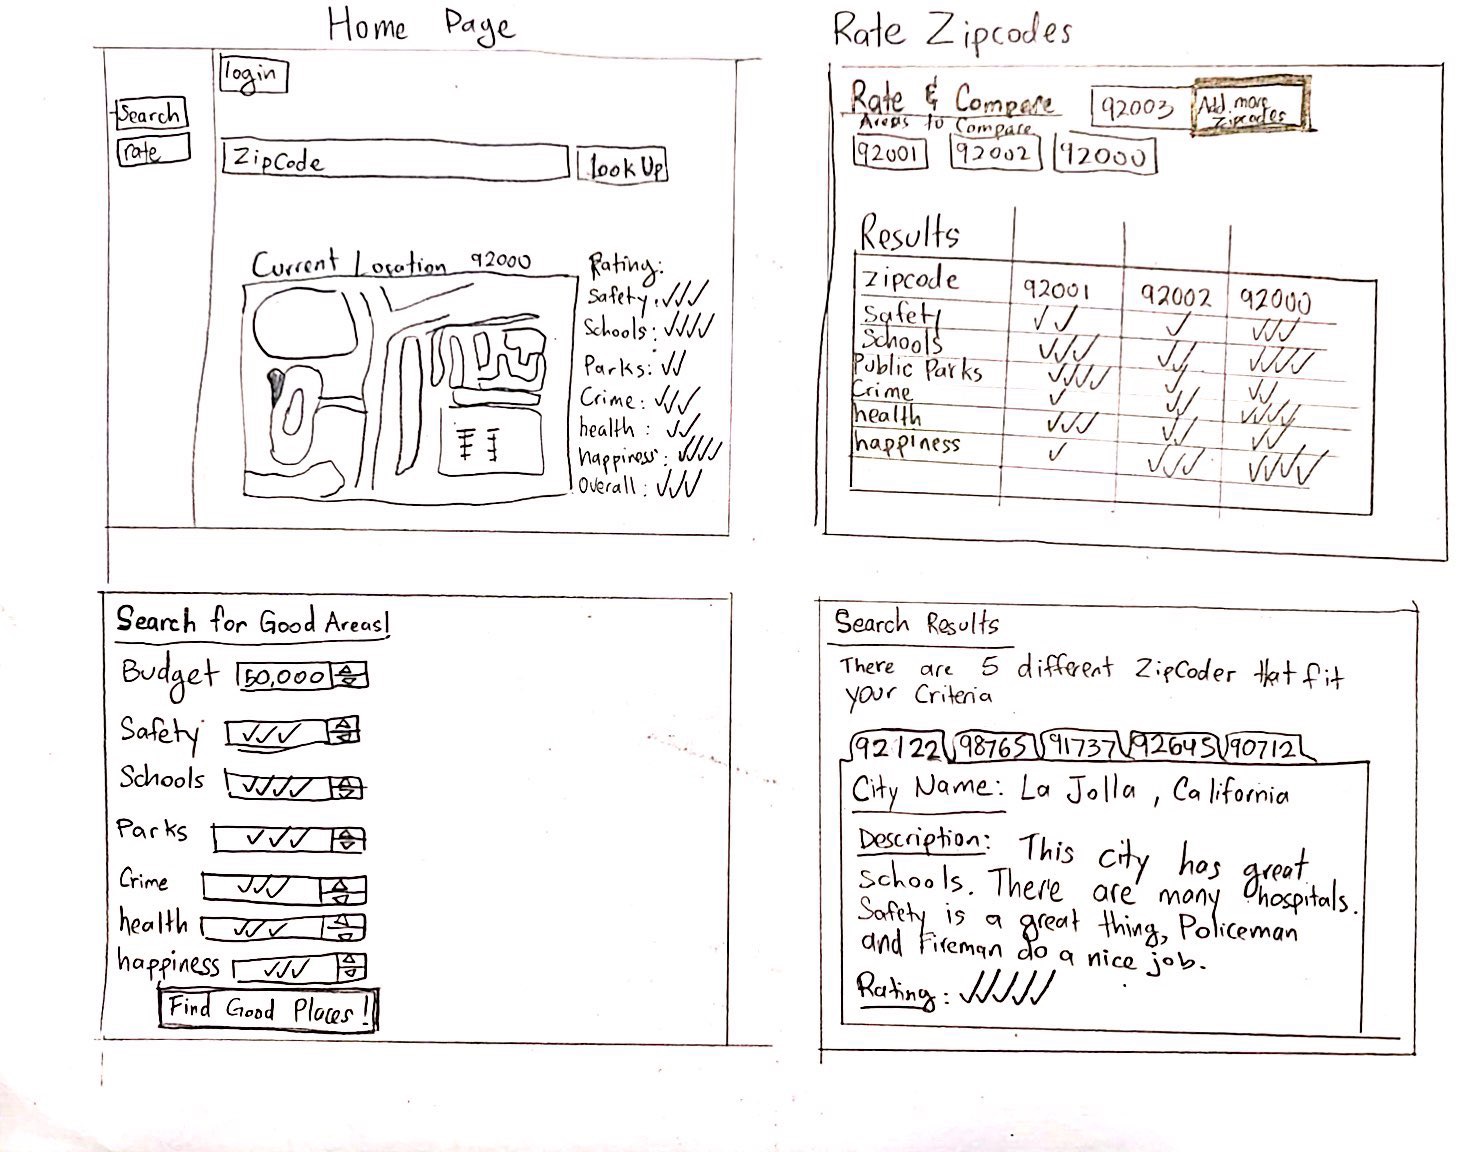 Home Page
login
Search
rate
ZipCode
Look Up
Current Location 92000
Rating:
Safety: ✓✓✓
Schools: ✓✓✓✓
Parks: ✓✓
Crime: ✓✓✓
health: ✓✓
happiness: ✓✓✓✓
Overall: ✓✓✓
Rate Zipcodes
Rate & Compare
92003
Add more
Zipcodes
Areas to Compare
92001 92002 92000
Results
Zipcode 92001 92002 92000
Safety ✓✓ ✓ ✓✓✓
Schools ✓✓✓ ✓✓ ✓✓✓✓
Public Parks ✓✓✓✓ ✓ ✓✓
Crime ✓ ✓✓ ✓✓✓✓
health ✓✓✓ ✓✓ ✓✓
happiness ✓ ✓✓✓ ✓✓✓✓
Search for Good Areas!
Budget 50,000
Safety ✓✓✓
Schools ✓✓✓✓
Parks ✓✓✓
Crime ✓✓✓
health ✓✓✓
happiness ✓✓✓
Find Good Places!
Search Results
There are 5 different ZipCoder that fit
your Criteria
92122 98765 91737 92645 90712
City Name: La Jolla, California
Description: This city has great
schools. There are many hospitals.
Safety is a great thing, Policeman
and Fireman do a nice job.
Rating: ✓✓✓✓✓